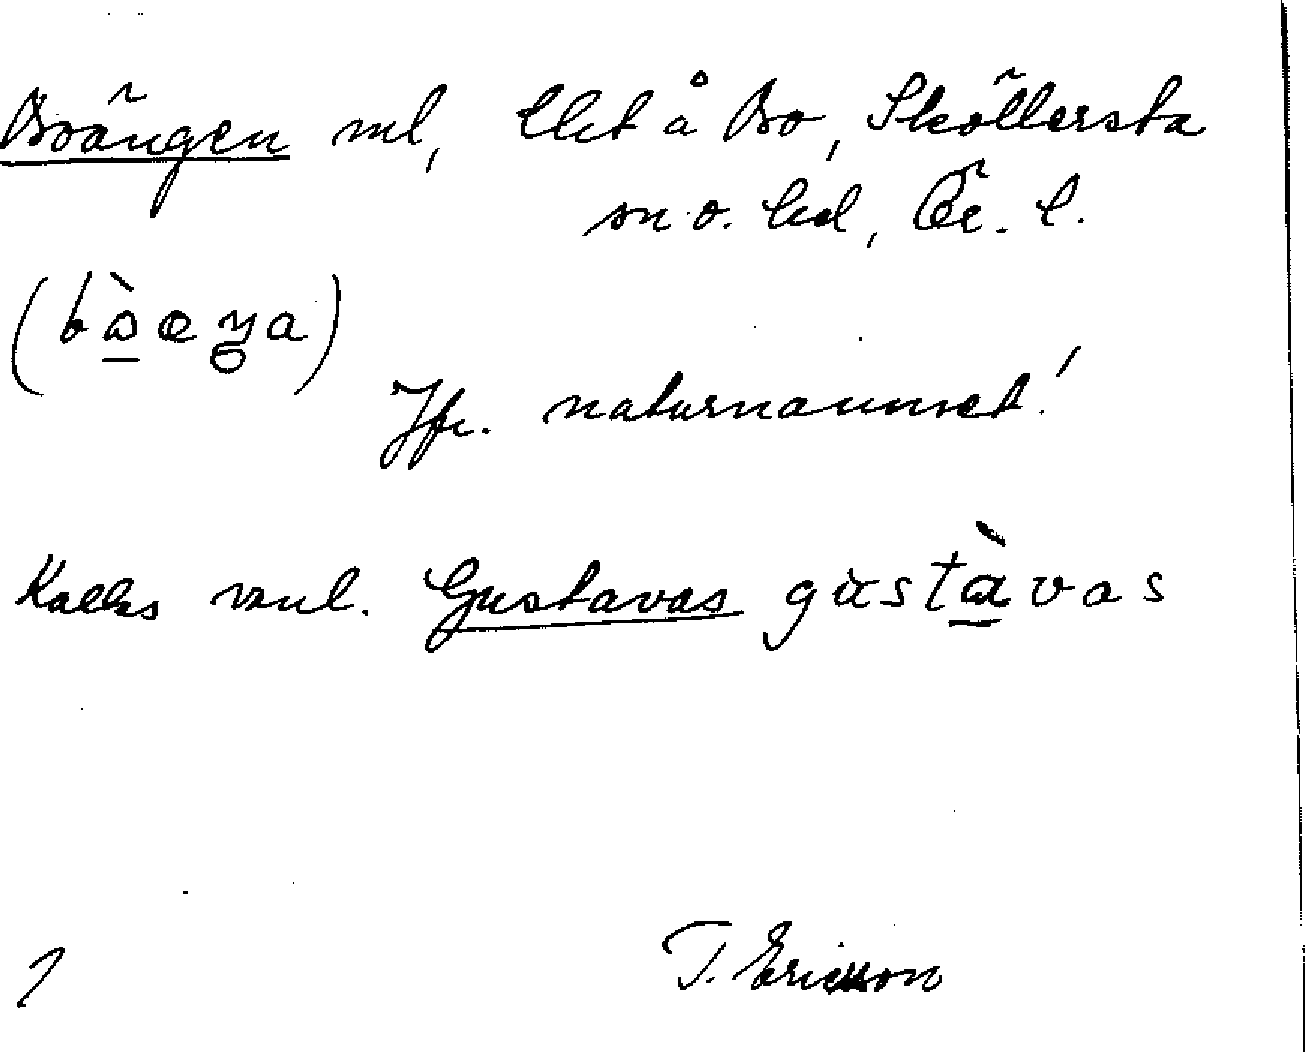 Boängen ml, Uet å Bo, Sköllersta
sn o. hd, Ör. l.
(bòæŋa)
Jfr. naturnamnet!
Kallas vanl. Gustavas gustàvas
T. Ericsson